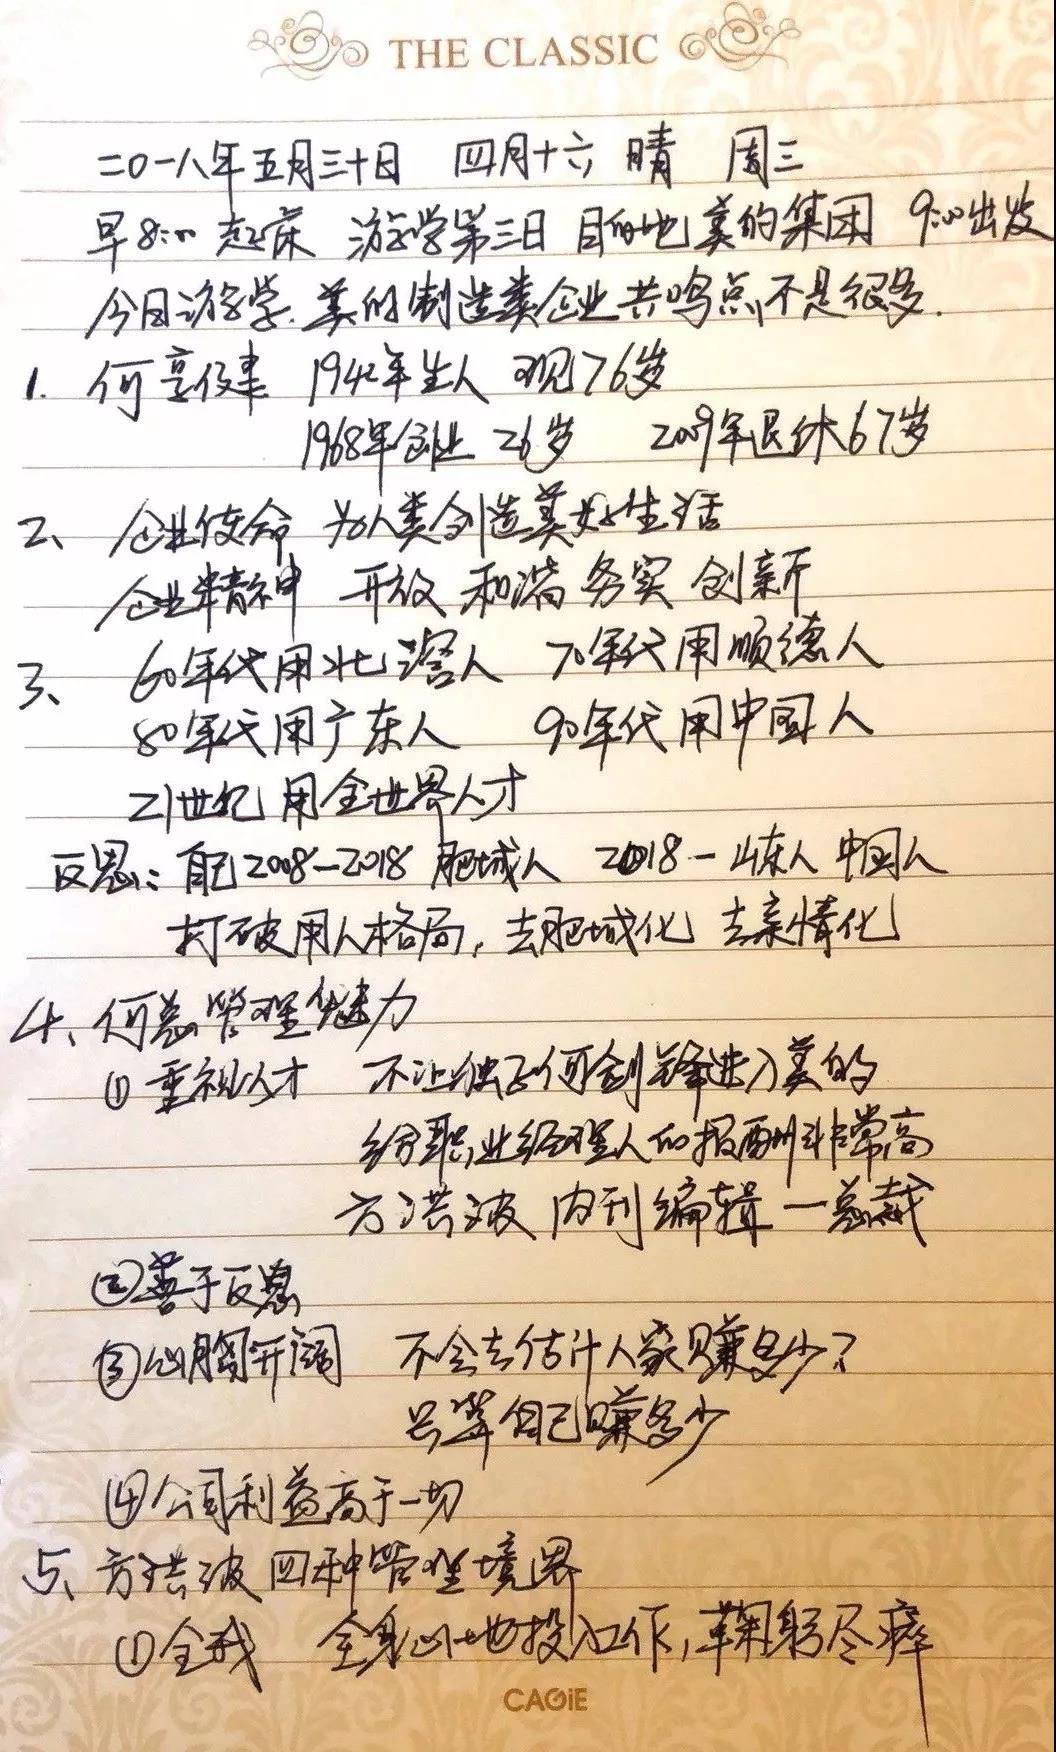 THE CLASSIC
二〇一八年五月三十日 四月十六 晴 周三
早8:00起床 游学第三日 目的地美的集团 9:00出发
今日游学.美的制造类企业共鸣点不是很多.
1. 何享健 1942年生人 现76岁
1968年创业 26岁 2009年退休67岁
2、企业使命 为人类创造美好生活
企业精神 开放 和谐 务实 创新
3、60年代用北滘人 70年代用顺德人
80年代用广东人 90年代用中国人
21世纪 用全世界人才
反思:自己2008—2018 肥城人 2018—山东人 中国人
打破用人格局,去肥城化 去亲情化
4、何总管理魅力
①重视人才 不让独子何剑锋进入美的
给职业经理人的报酬非常高
方洪波 内刊编辑—总裁
②善于反思
③心胸开阔 不会去估计人家赚多少?
只算自己赚多少
④公司利益高于一切
5、方洪波四种管理境界
①全我 全身心地投入工作,鞠躬尽瘁
CAGiE